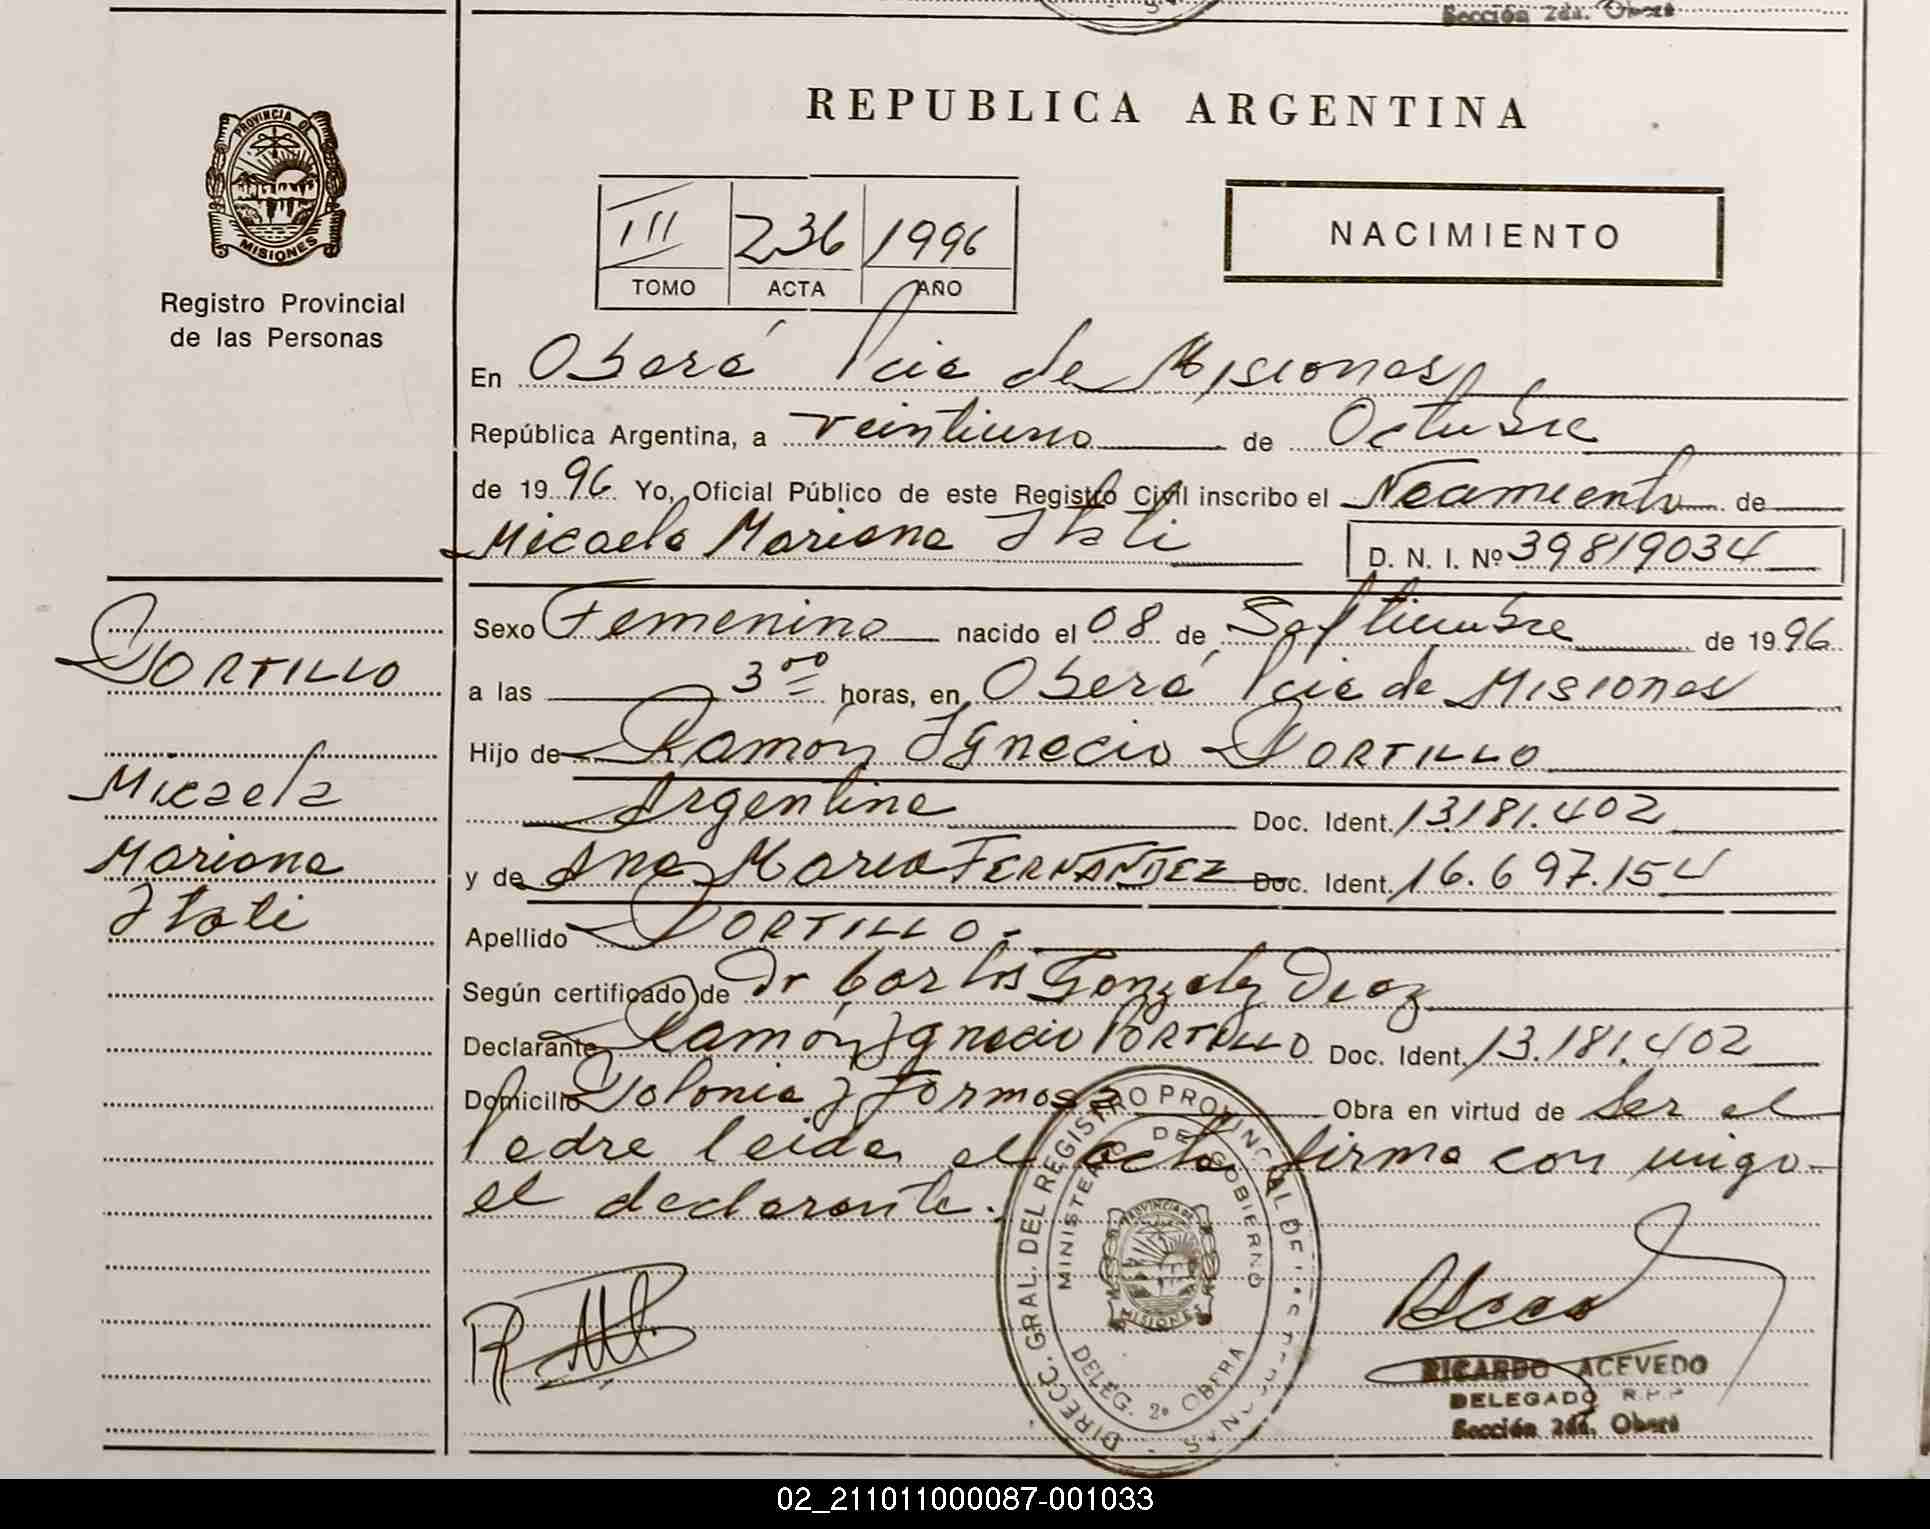 Sección 2da. Oberá
REPUBLICA ARGENTINA
PROVINCIA DE
MISIONES
Registro Provincial
de las Personas
III 236 1996
TOMO ACTA AÑO
NACIMIENTO
En Oberá Pcia de Misiones
República Argentina, a veintiuno de Octubre
de 1996 Yo, Oficial Público de este Registro Civil inscribo el Nacimiento de
Micaela Mariana Itati D. N. I. Nº 39819034
Sexo Femenino nacido el 08 de Septiembre de 1996
a las 3 00 horas, en Oberá Pcia de Misiones
Hijo de Ramón Ignacio PORTILLO
Argentina Doc. Ident. 13.181.402
y de Ana Maria FERNANDEZ Doc. Ident. 16.697.154
Apellido PORTILLO.-
Según certificado de Dr Carlos Gonzalez Diaz
Declarante Ramón Ignacio PORTILLO Doc. Ident. 13.181.402
Domicilio Colonia Formosa Obra en virtud de Ser el
Padre leida el acta firma con migo-
el declarante.
PORTILLO
Micaela
Mariana
Itati
DIRECC. GRAL. DEL REGISTRO PROVINCIAL DE LAS PERSONAS
MINISTERIO DE GOBIERNO
PROVINCIA DE
MISIONES
DELEG. 2º OBERA
RICARDO ACEVEDO
DELEGADO R.P.P
Sección 2da. Oberá
02_211011000087-001033